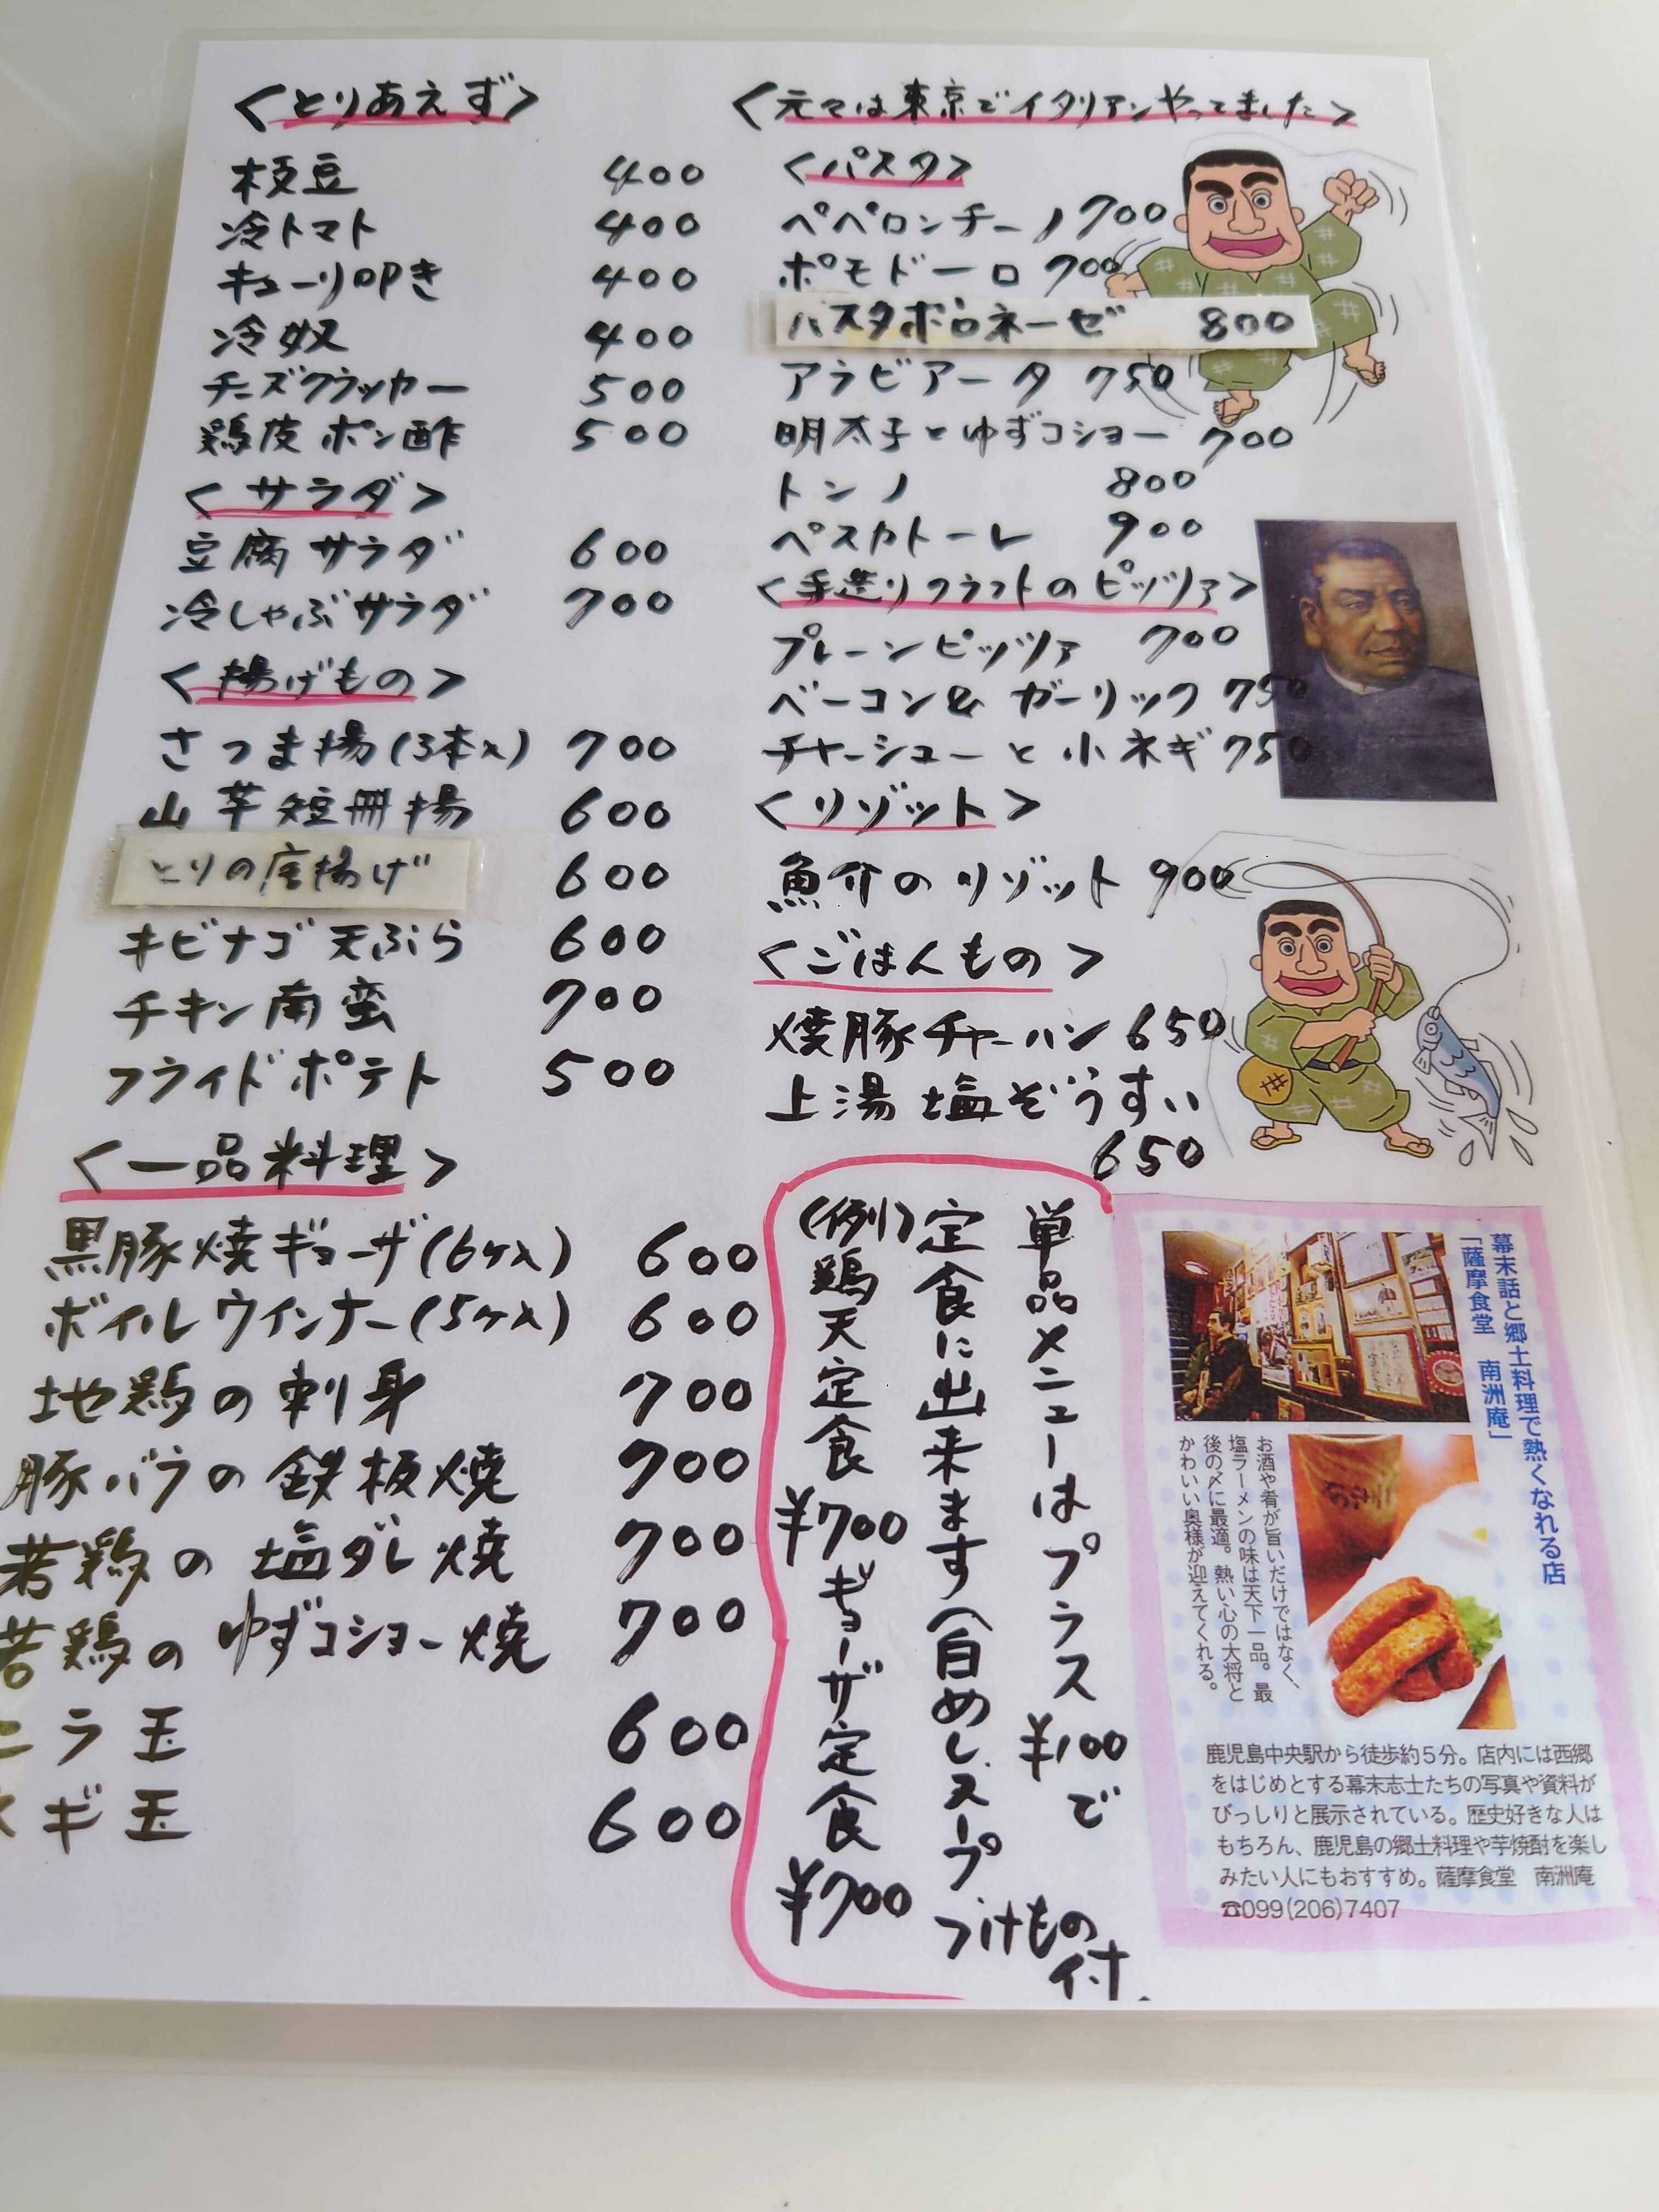 <とりあえず>
枝豆 400
冷トマト 400
キューリ叩き 400
冷奴 400
チーズクラッカー 500
鶏皮ポン酢 500
<サラダ>
豆腐サラダ 600
冷しゃぶサラダ 700
<揚げもの>
さつま揚(3本入) 700
山芋短冊揚 600
とりの唐揚げ 600
キビナゴ天ぷら 600
チキン南蛮 700
フライドポテト 500
<一品料理>
黒豚焼ギョーザ(6ケ入) 600
ボイルウインナー(5ケ入) 600
地鶏の刺身 700
豚バラの鉄板焼 700
若鶏の塩ダレ焼 700
若鶏のゆずコショー焼 700
ニラ玉 600
ネギ玉 600
<元々は東京でイタリアンやってました>
<パスタ>
ペペロンチーノ 700
ポモドーロ 700
パスタボロネーゼ 800
アラビアータ 750
明太子とゆずコショー 700
トンノ 800
ペスカトーレ 900
<手造りクラフトのピッツァ>
プレーンピッツァ 700
ベーコン&ガーリック 750
チャーシューと小ネギ 750
<リゾット>
魚介のリゾット 900
<ごはんもの>
焼豚チャーハン 650
上湯塩ぞうすい
650
単品メニューはプラス¥100で
定食に出来ます(白めし、スープ、つけもの付、
(例)鶏天定食¥700 ギョーザ定食¥700
幕末話と郷土料理で熱くなれる店
「薩摩食堂 南洲庵」
お酒や肴が旨いだけではなく、
塩ラーメンの味は天下一品。最
後の〆に最適。熱い心の大将と
かわいい奥様が迎えてくれる。
鹿児島中央駅から徒歩約5分。店内には西郷
をはじめとする幕末志士たちの写真や資料が
びっしりと展示されている。歴史好きな人は
もちろん、鹿児島の郷土料理や芋焼酎を楽し
みたい人にもおすすめ。薩摩食堂 南洲庵
☎099(206)7407